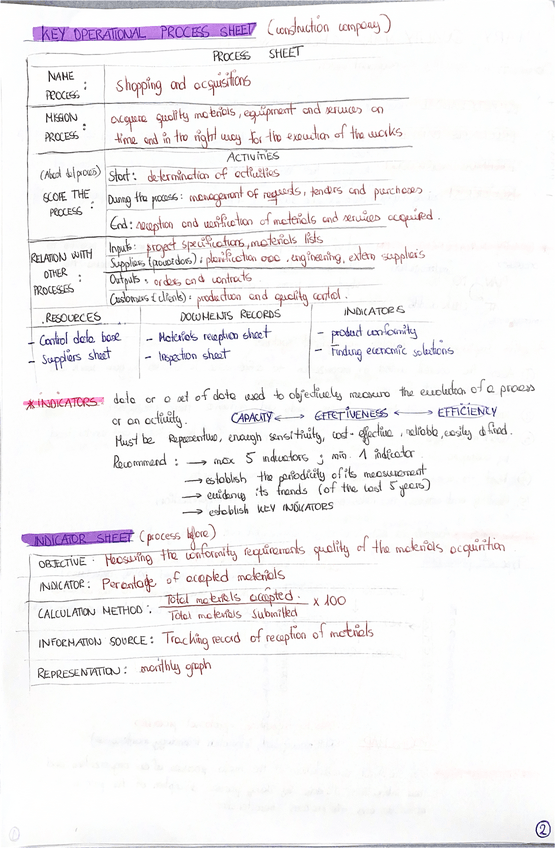 KEY OPERATIONAL PROCESS SHEET (construction company)
PROCESS SHEET
NAME PROCESS: Shopping and acquisitions
MISSION PROCESS: acquire quality materials, equipment and services on
time and in the right way for the execution of the works
ACTIVITIES
SCOPE THE PROCESS:
Start: determination of activities
During the process: management of requests, tenders and purchases.
End: reception and verification of materials and services acquired.
RELATION WITH OTHER PROCESSES
Inputs: project specifications, materials lists
Suppliers (proveedores): planification, engineering, extern suppliers
Outputs: orders and contracts
Customers (clients): production and quality control.
RESOURCES DOCUMENTS RECORDS INDICATORS
- Control data base - Materials reception sheet - product conformity
- Suppliers sheet - Inspection sheet - Finding economic solutions
* INDICATORS: data or a set of data used to objectively measure the evolution of a process
or an activity. CAPACITY ↔ EFFECTIVENESS ↔ EFFICIENCY
Must be Representive, enough sensitivity, cost-effective, reliable, easily defined.
Recommend: → max 5 indicators; min. 1 indicator.
→ establish the periodicity of its measurement
→ evidency its trends (of the last 5 years)
→ establish KEY INDICATORS
INDICATOR SHEET (process before)
OBJECTIVE. Measuring the conformity requirements quality of the materials acquirition
INDICATOR: Percentage of accepted materials
CALCULATION METHOD: Total materials accepted. / Total materials submitted x 100
INFORMATION SOURCE: Tracking record of reception of materials
REPRESENTATION: monthly graph
2